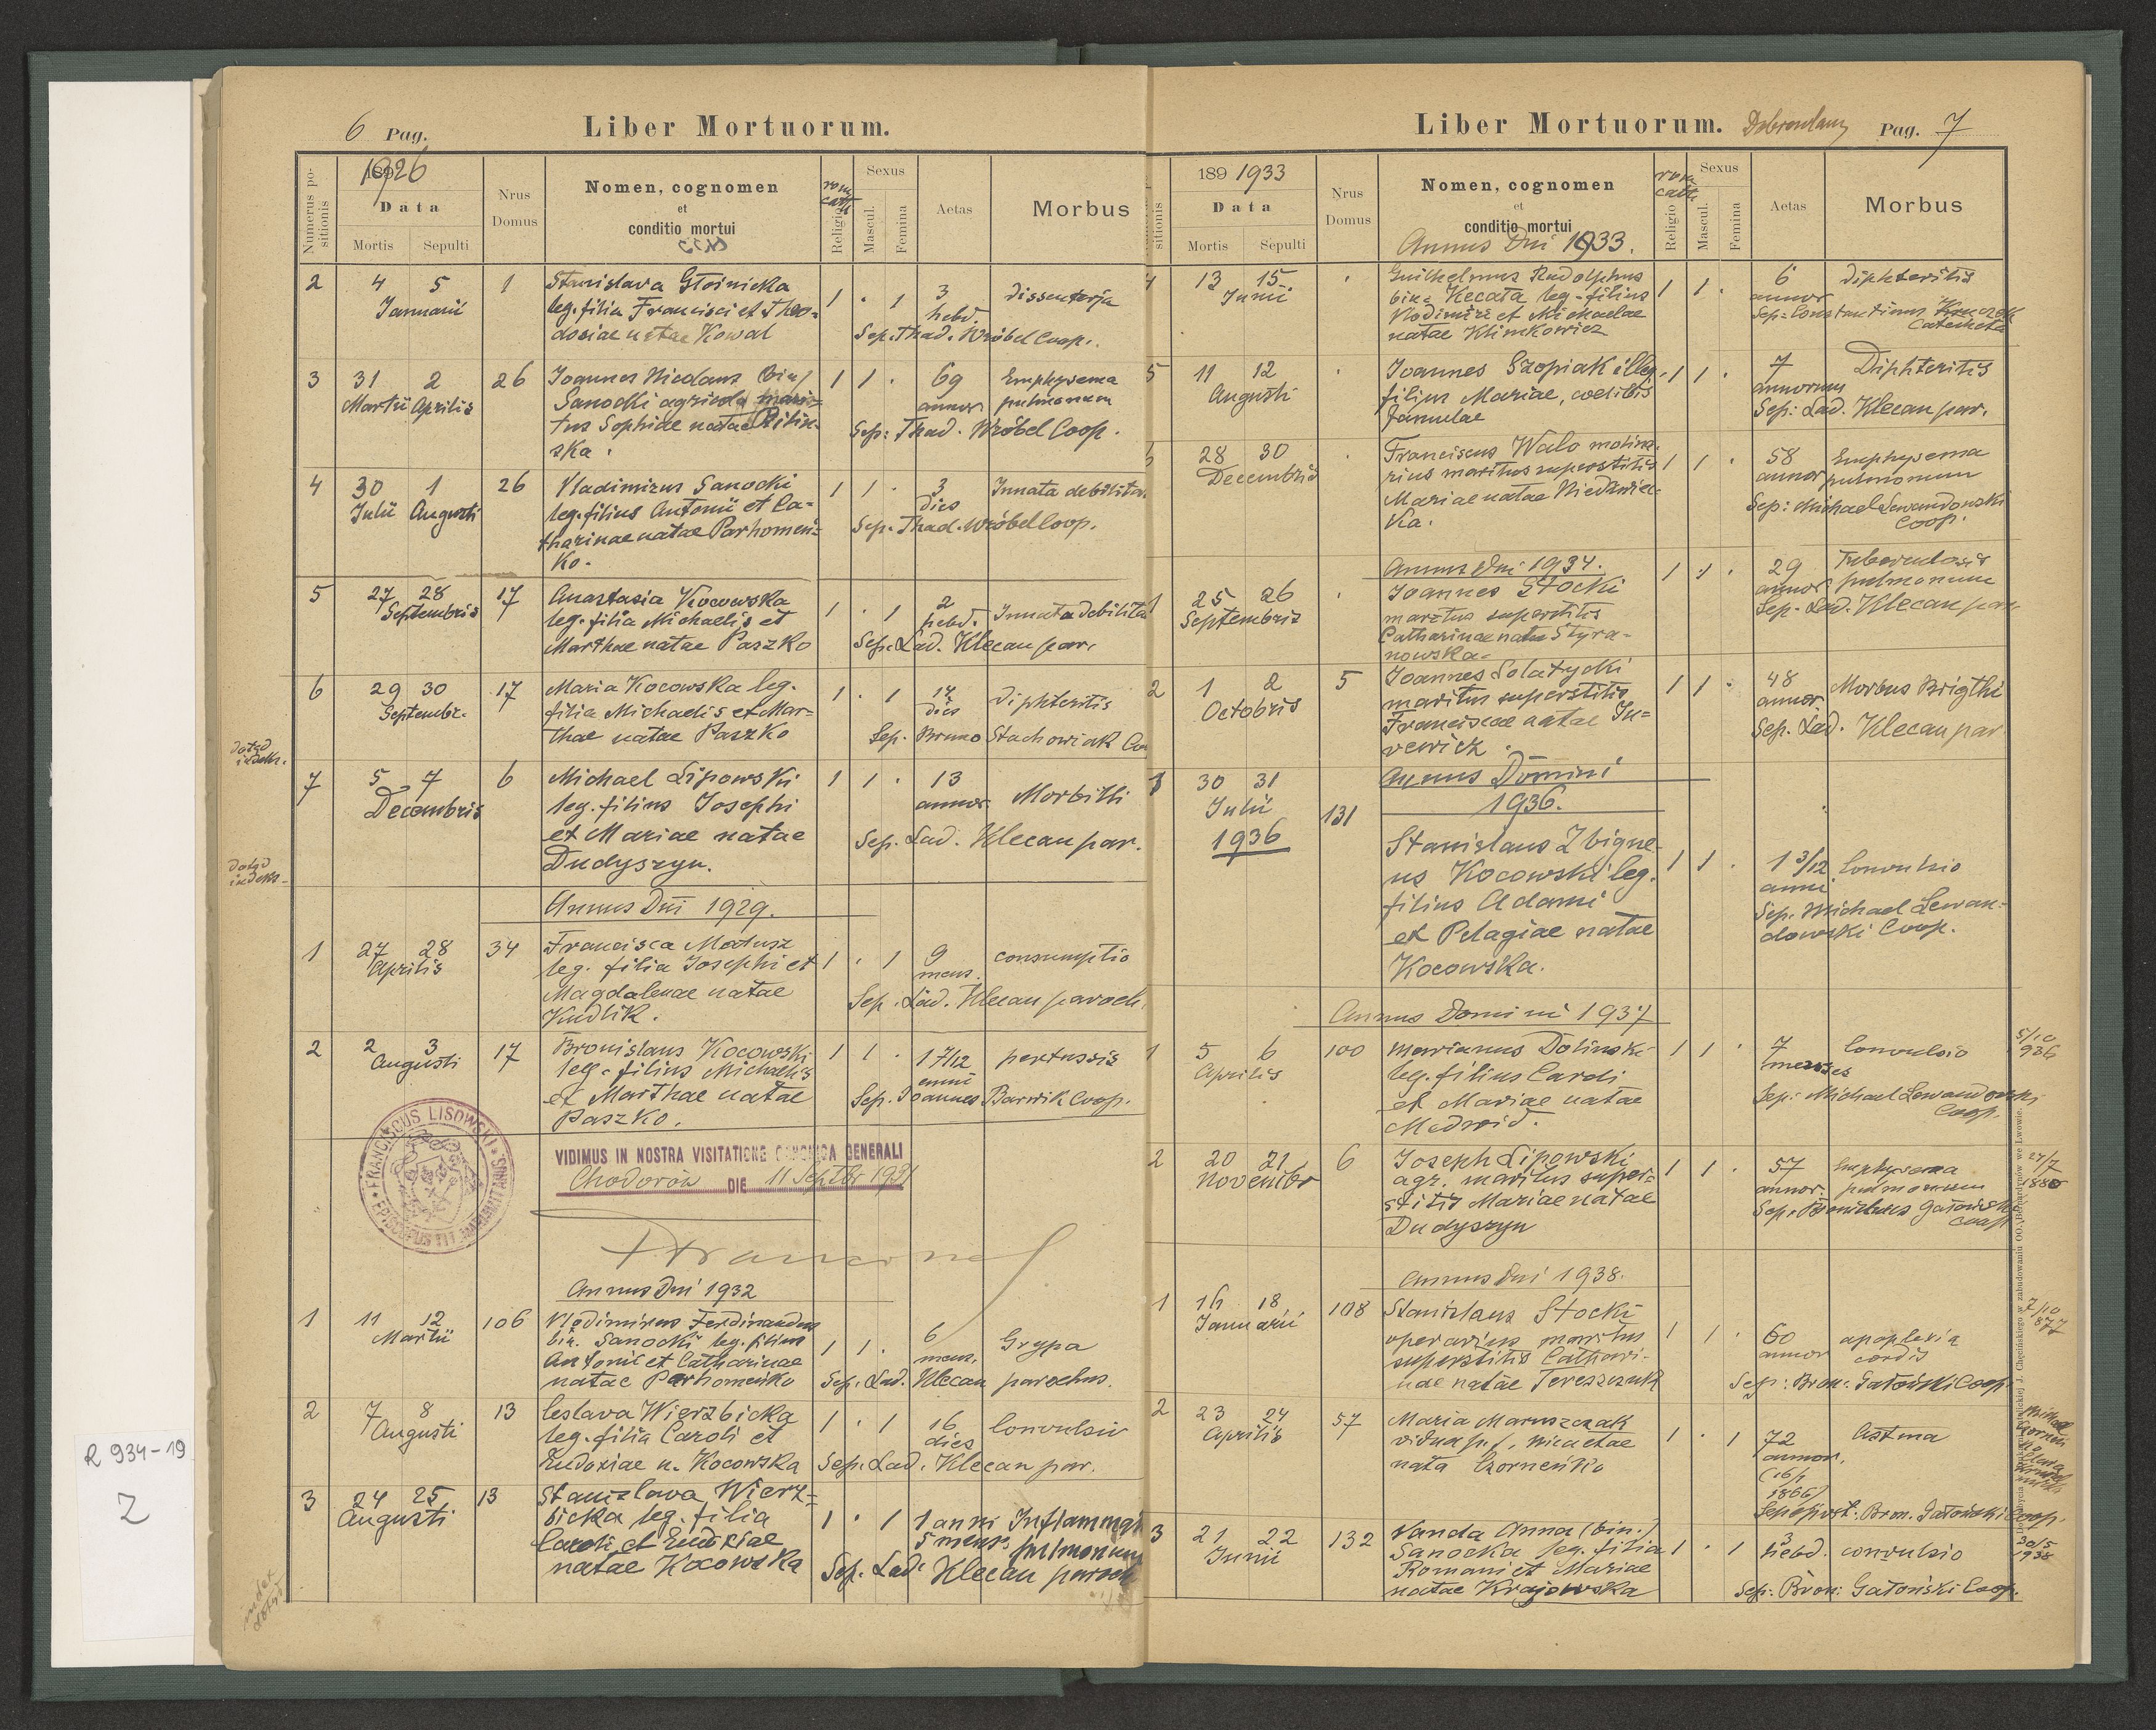 6 Pag.
Liber Mortuorum.
Numerus positionis
1926
Data
Mortis Sepulti
Nrus Domus
Nomen, cognomen
et
conditio mortui
rom. cath.
Religio
Sexus
Mascul. Femina
Aetas
Morbus
2 4 5 1 Stanislava Głoinicka
Januarii leg. filia Francisci et Theo-
dosiae natae Kowal
1 · 1 3 hebd. dissenterja
Sep. Thad. Wróbel Coop.
3 31 2 26 Joannes Niedans (bin)
Martii Aprilis Sanocki agricola mari-
tus Sophiae natae
zka.
1 1 · 69 Emphysema
annor pulmonum
Sep: Thad. Wróbel Coop.
4 30 1 26 Vladimirus Sanocki
Julii Augusti leg. filius Antonii et Ca-
tharinae natae Parhomen-
ko.
1 1 · 3 dies Innata debilitas
Sep. Thad. Wróbel Coop.
5 27 28 17 Anastasia Kocowska
Septembris leg. filia Michaelis et
Marthae natae Paszko
1 · 1 2 hebd. Innata debilitas
Sep. Lad. Klecan par.
6 29 30 17 Maria Kocowska leg.
Septembr. filia Michaelis et Mar-
thae natae Paszko
1 · 1 14 dies diphteritis
Sep. Bruno Stachowiak Co
dotąd
indeks.
7 5 7 6 Michael Lipowski
Decembris leg. filius Josephi
et Mariae natae
Dudyszyn.
1 1 · 13 annor. Morbilli
Sep. Lad. Klecan par.
dotąd
indeks.
Annus Dni 1929.
1 27 28 34 Francisca Matusz
Aprilis leg. filia Josephi et
Magdalenae natae
Kudlik.
1 · 1 9 mens. consumptio
Sep. Lad. Klecan paroch.
2 2 3 17 Bronislaus Kocowski
Augusti leg. filius Michaelis
et Marthae natae
Paszko.
1 1 · 1 7/12 anni pertussis
Sep. Joannes Barwik Coop.
FRANCISCUS LISOWSKI
VIDIMUS IN NOSTRA VISITATIONE CANONICA GENERALI
Chodorów DIE 11 Septbr 1931
Annus Dni 1932
1 11 12 106 Vlodimirus Ferdinandus
Martii bin. Sanocki leg. filius
Antonii et Catharinae
natae Parhomeńko
1 1 · 6 mens. Grypa
Sep. Lad. Klecan parochus.
2 7 8 13 Ceslava Wierzbicka
Augusti leg. filia Caroli et
Eudoxiae n. Kocowska
1 · 1 16 dies Convulsio
Sep. Lad. Klecan par.
3 24 25 13 Stanislava Wierz-
Augusti bicka leg. filia
Caroli et Eudoxiae
natae Kocowska
1 · 1 1 anni Inflammat
5 mens. pulmonum
Sep. Lad. Klecan paroch
index
dotąd
R 934-19
2
Liber Mortuorum. Pag. 7
sitionis
189 1933
Data
Mortis Sepulti
Nrus Domus
Nomen, cognomen
et
conditio mortui
Annus Dni 1933.
rom. cath.
Religio
Sexus
Mascul. Femina
Aetas
Morbus
4 13 15 · Guilhelmus Radolphus
Junii bin. Kecata leg. filius
Vlodimiri et Michaelae
natae Klimkowicz
1 1 · 6 annor diphteritis
Sep: Constantinus
Catecheta
5 11 12 · Joannes Szopiak illeg.
Augusti filius Mariae, coelibis
famulae
1 1 · 7 annorum Diphteritis
Sep: Lad. Klecan par.
6 28 30 · Franciscus Walo molina-
Decembris rius maritus superstitis
Mariae natae Niedzwiec-
ka.
1 1 · 58 Emphysema
annor pulmonum
Sep: Michael Lewandowski
Coop.
Annus Dni 1934.
1 25 26 · Joannes Stocki
Septembris maritus superstitis
Catharinae natae Styra-
nowska.
1 1 · 29 Tuberculosis
annor pulmonum
Sep. Lad. Klecan par.
2 1 2 5 Joannes Solatycki
Octobris maritus superstitis
Franciscae natae Ju-
rewicz.
1 1 · 48 annor Morbus Brigthi
Sep. Lad. Klecan par.
Annus Domini
1936.
1 30 31 131
Julii
1936
Stanislaus Zbigne-
us Kocowski leg.
filius Adami
et Pelagiae natae
Kocowska.
1 1 · 1 3/12 anni Convulsio
Sep. Michael Lewan-
dowski Coop.
Annus Domini 1937
1 5 6 100 Marianus Dolinski
Aprilis leg. filius Caroli
et Mariae natae
Medwid.
1 1 · 7 menses Convulsio
Sep: Michael Lewandowski
Coop.
5/10
936
2 20 21 6 Joseph Lipowski
Novembr agr. maritus super-
stitis Mariae natae
Dudyszyn
1 1 · 57 Emphysema
annor pulmonum
Sep. Bronislaus Gatoński
Coop
27/7
1880
Annus Dni 1938.
1 16 18 108 Stanislaus Stocki
Januarii operarius maritus
superstitis Cathari-
nae natae Tereszczuk
1 1 · 60 apoplexia
annor cordis
Sep: Bron. Gatoński Coop.
7/10
877
2 23 24 57 Maria Maruszczak
Aprilis vidua p. f. Nicetae
nata Czorneńko
1 · 1 72 annor. Astma
(16/1
1866)
Sep. Bron. Gatoński Coop.
3 21 22 132 Vanda Anna (bin.)
Junii Sanocka leg. filia
Romani et Mariae
natae Krajowska
1 · 1 3 hebd. convulsio
Sep: Bron: Gatoński Coop.
30/5
1938